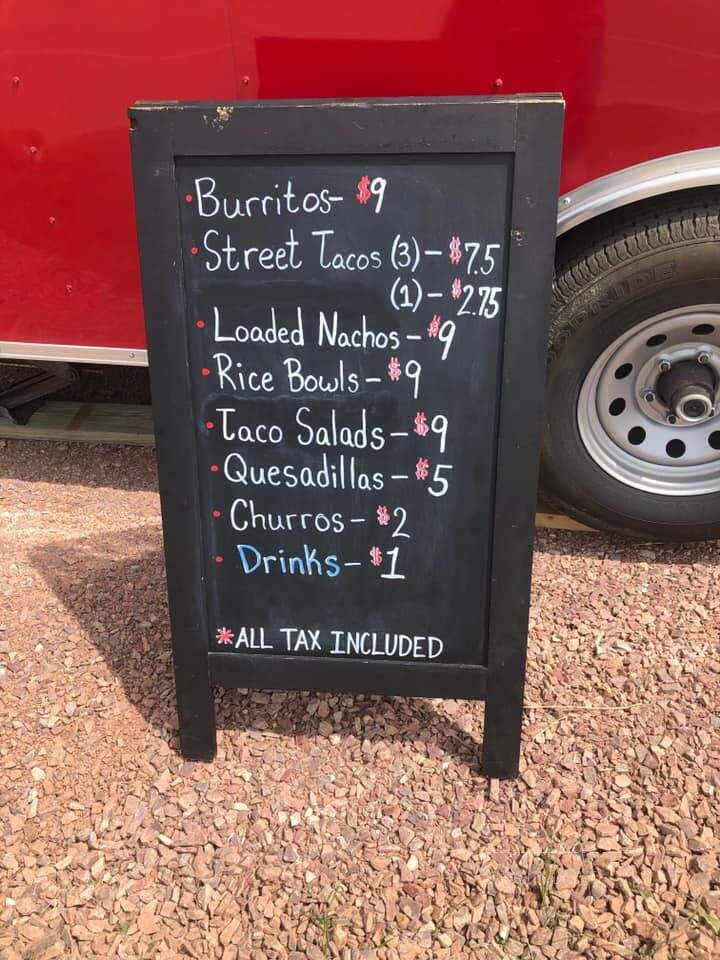 •Burritos- $9
•Street Tacos (3) - $7.5
(1) - $2.75
•Loaded Nachos - $9
•Rice Bowls - $9
•Taco Salads - $9
•Quesadillas - $5
•Churros - $2
•Drinks - $1
*ALL TAX INCLUDED